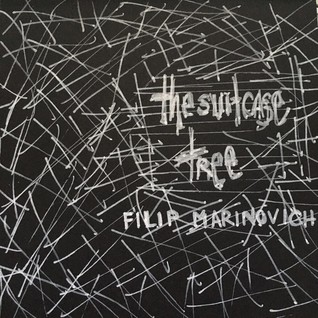 the suitcase
tree
FILIP MARINOVICH